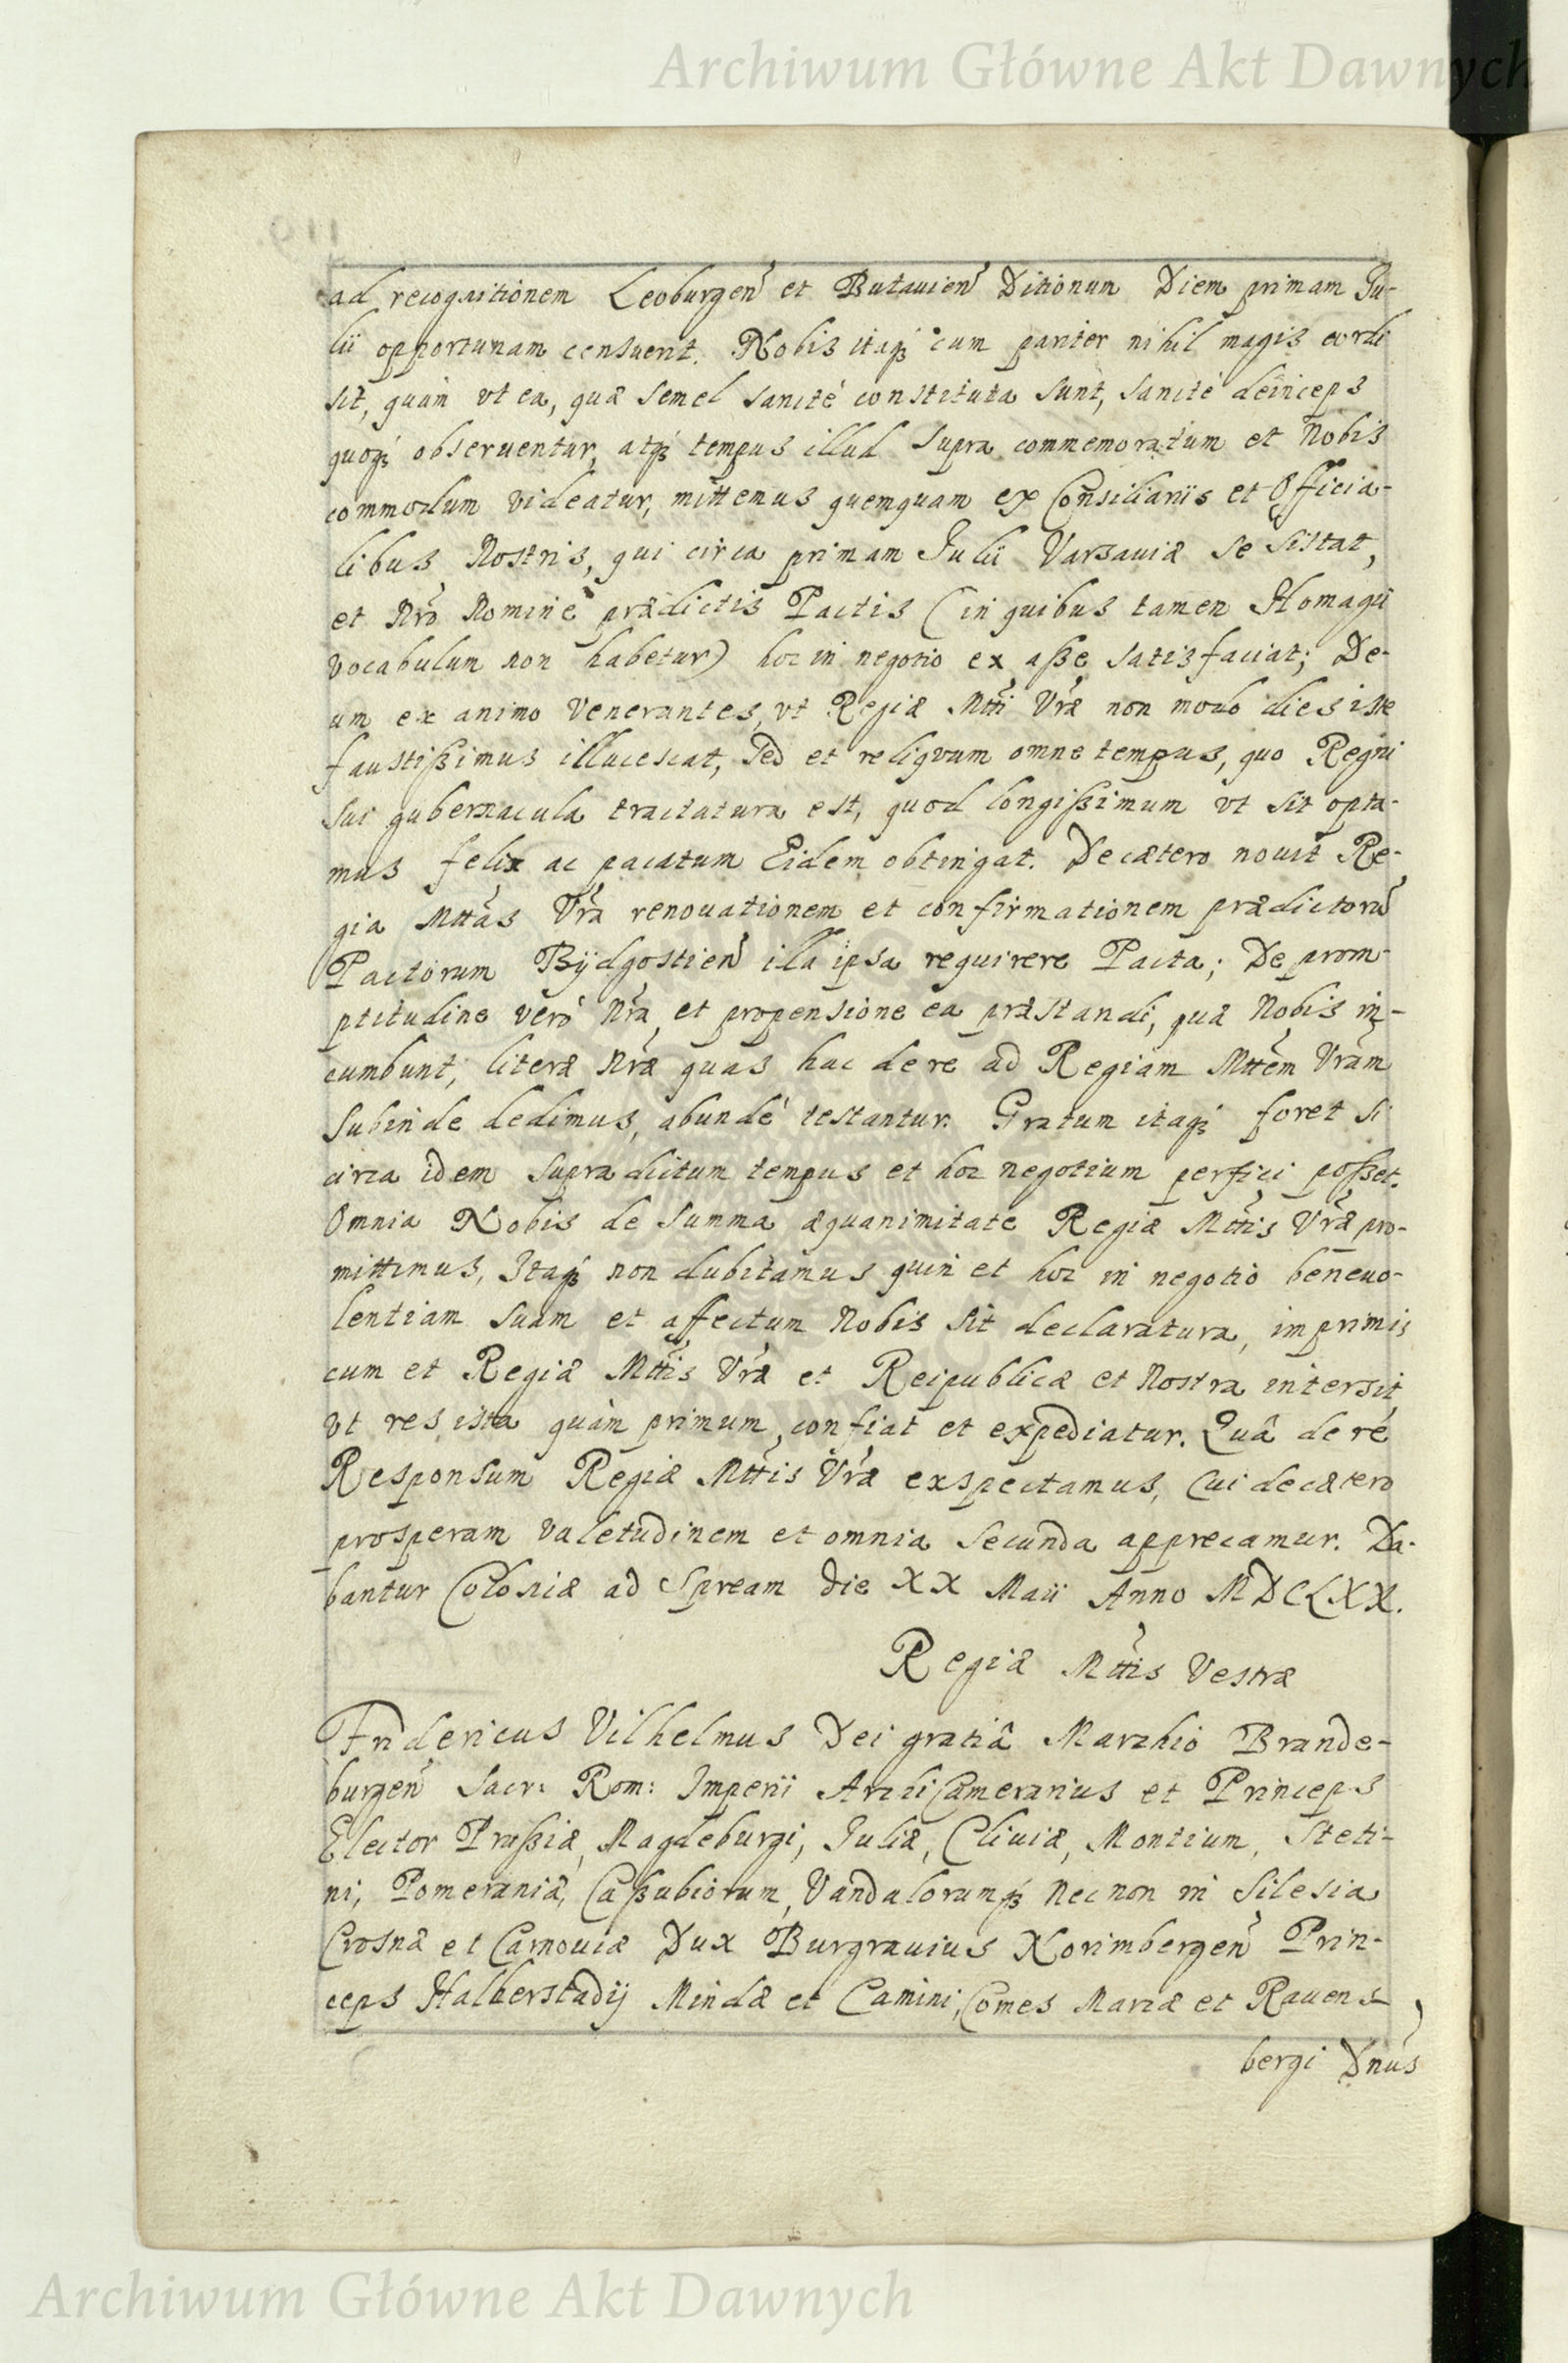 Archiwum Główne Akt Dawnych
ad recognitionem Leoburgen̄ et Butauien̄ Ditionum Diem primam Ju-
lii opportunam censuerit. Nobis itaq́ꝫ cum pariter nihil magis cordi
sit, quàm vt ea, quæ semel sanctè constituta sunt, sanctè deinceps
quoq́ꝫ obseruentur, atq́ꝫ tempus illud supra commemoratum et Nobis
commodum videatur, mittemus quemquam ex Consiliariis et Officia-
libus Nostris, qui circa primam Julii Varsauiæ se sistat,
et Nrō Nomine prædictis Pactis (in quibus tamen Homagii
vocabulum non habetur) hoc in negotio ex aße satisfaciat; De-
um ex animo Venerantes, vt Regiæ Mtti Vræ non modo dies iste
faustißimus illucescat, sed et reliqvum omne tempus, quo Regni
sui gubernacula tractatura est, quod longißimum vt sit opta-
mus felix ac pacatum Eidem obtingat. De cætero nouit Re-
gia Mttas Vrā renouationem et confirmationem prædictorū
Pactorum Bÿdgostien̄ illa ipsa requirere Pacta; De prom-
ptitudine verò Nrā et propensione ea præstandi, quæ Nobis in-
cumbunt, literæ Nræ quas hac de re ad Regiam Mttem Vram
subinde dedimus, abundè testantur. Gratum itaq́ꝫ foret si
circa idem supra dictum tempus et hoc negotium perfici poßet.
Omnia Nobis de summa æquanimitate Regiæ Mttis Vræ pro-
mittimus, Itaq́ꝫ non dubitamus quin et hoc in negotio beneuo-
lentiam suam et affectum Nobis sit declaratura, imprimis
cum et Regiæ Mttis Vræ et Reipublicæ et Nostra intersit,
vt res ista quàm primum confiat et expediatur. Quâ de re
Responsum Regiæ Mttis Vræ exspectamus, Cui de cætero
prosperam valetudinem et omnia secunda apprecamur. Da-
bantur Coloniæ ad Spream die XX Maii Anno MDCLXX.
Regiæ Mttis Vestræ
Fridericus Vilhelmus Dei gratiâ Marchio Brande-
burgen̄ Sacr: Rom: Imperii Archi Camerarius et Princeps
Elector Prußiæ, Magdeburgi, Juliæ, Cliuiæ, Montium, Steti-
ni, Pomeraniæ, Caßubiorum, Vandalorumq́ꝫ Nec non in Silesia
Crosnæ et Carnouiæ Dux Burgrauius Norimbergen̄ Prin-
ceps Halberstadÿ Mindæ et Camini, Comes Marcæ et Rauens-
bergi Dnus
Archiwum Główne Akt Dawnych